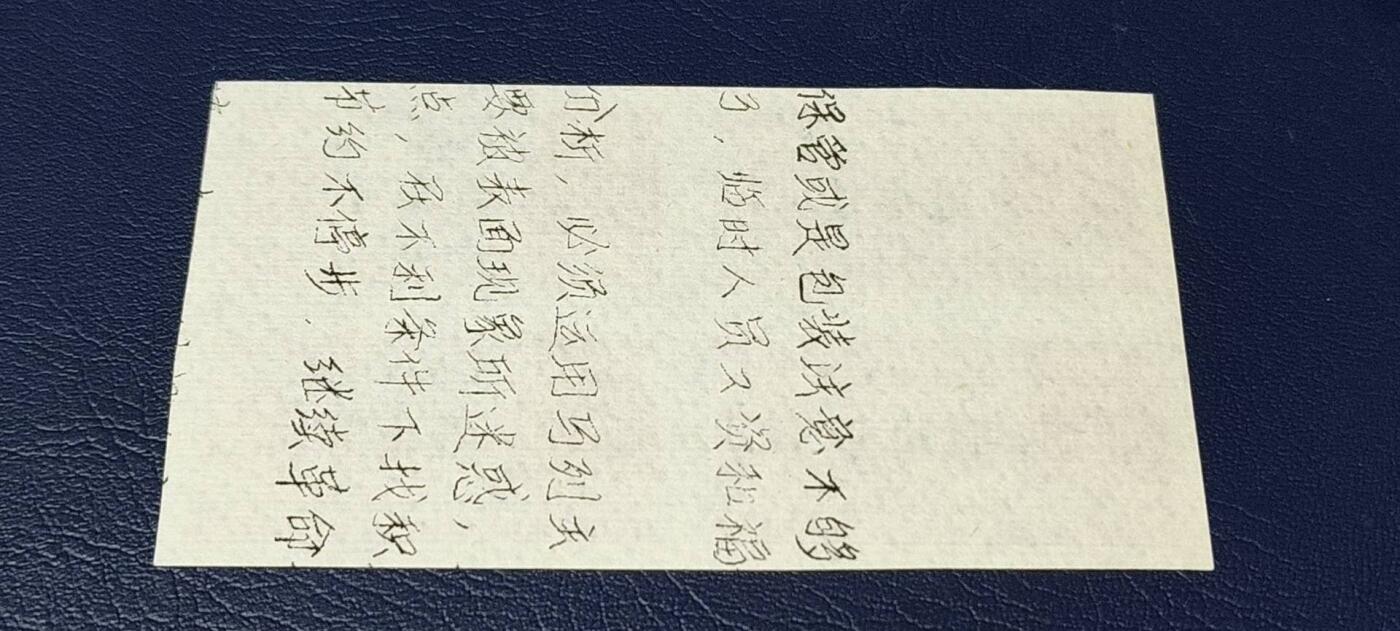 保管或是包装注意不够
，临时人员工资和福
分析，必须运用马列主
要被表面现象所迷惑，
点，不利条件不找积
节约不停步．继续革命